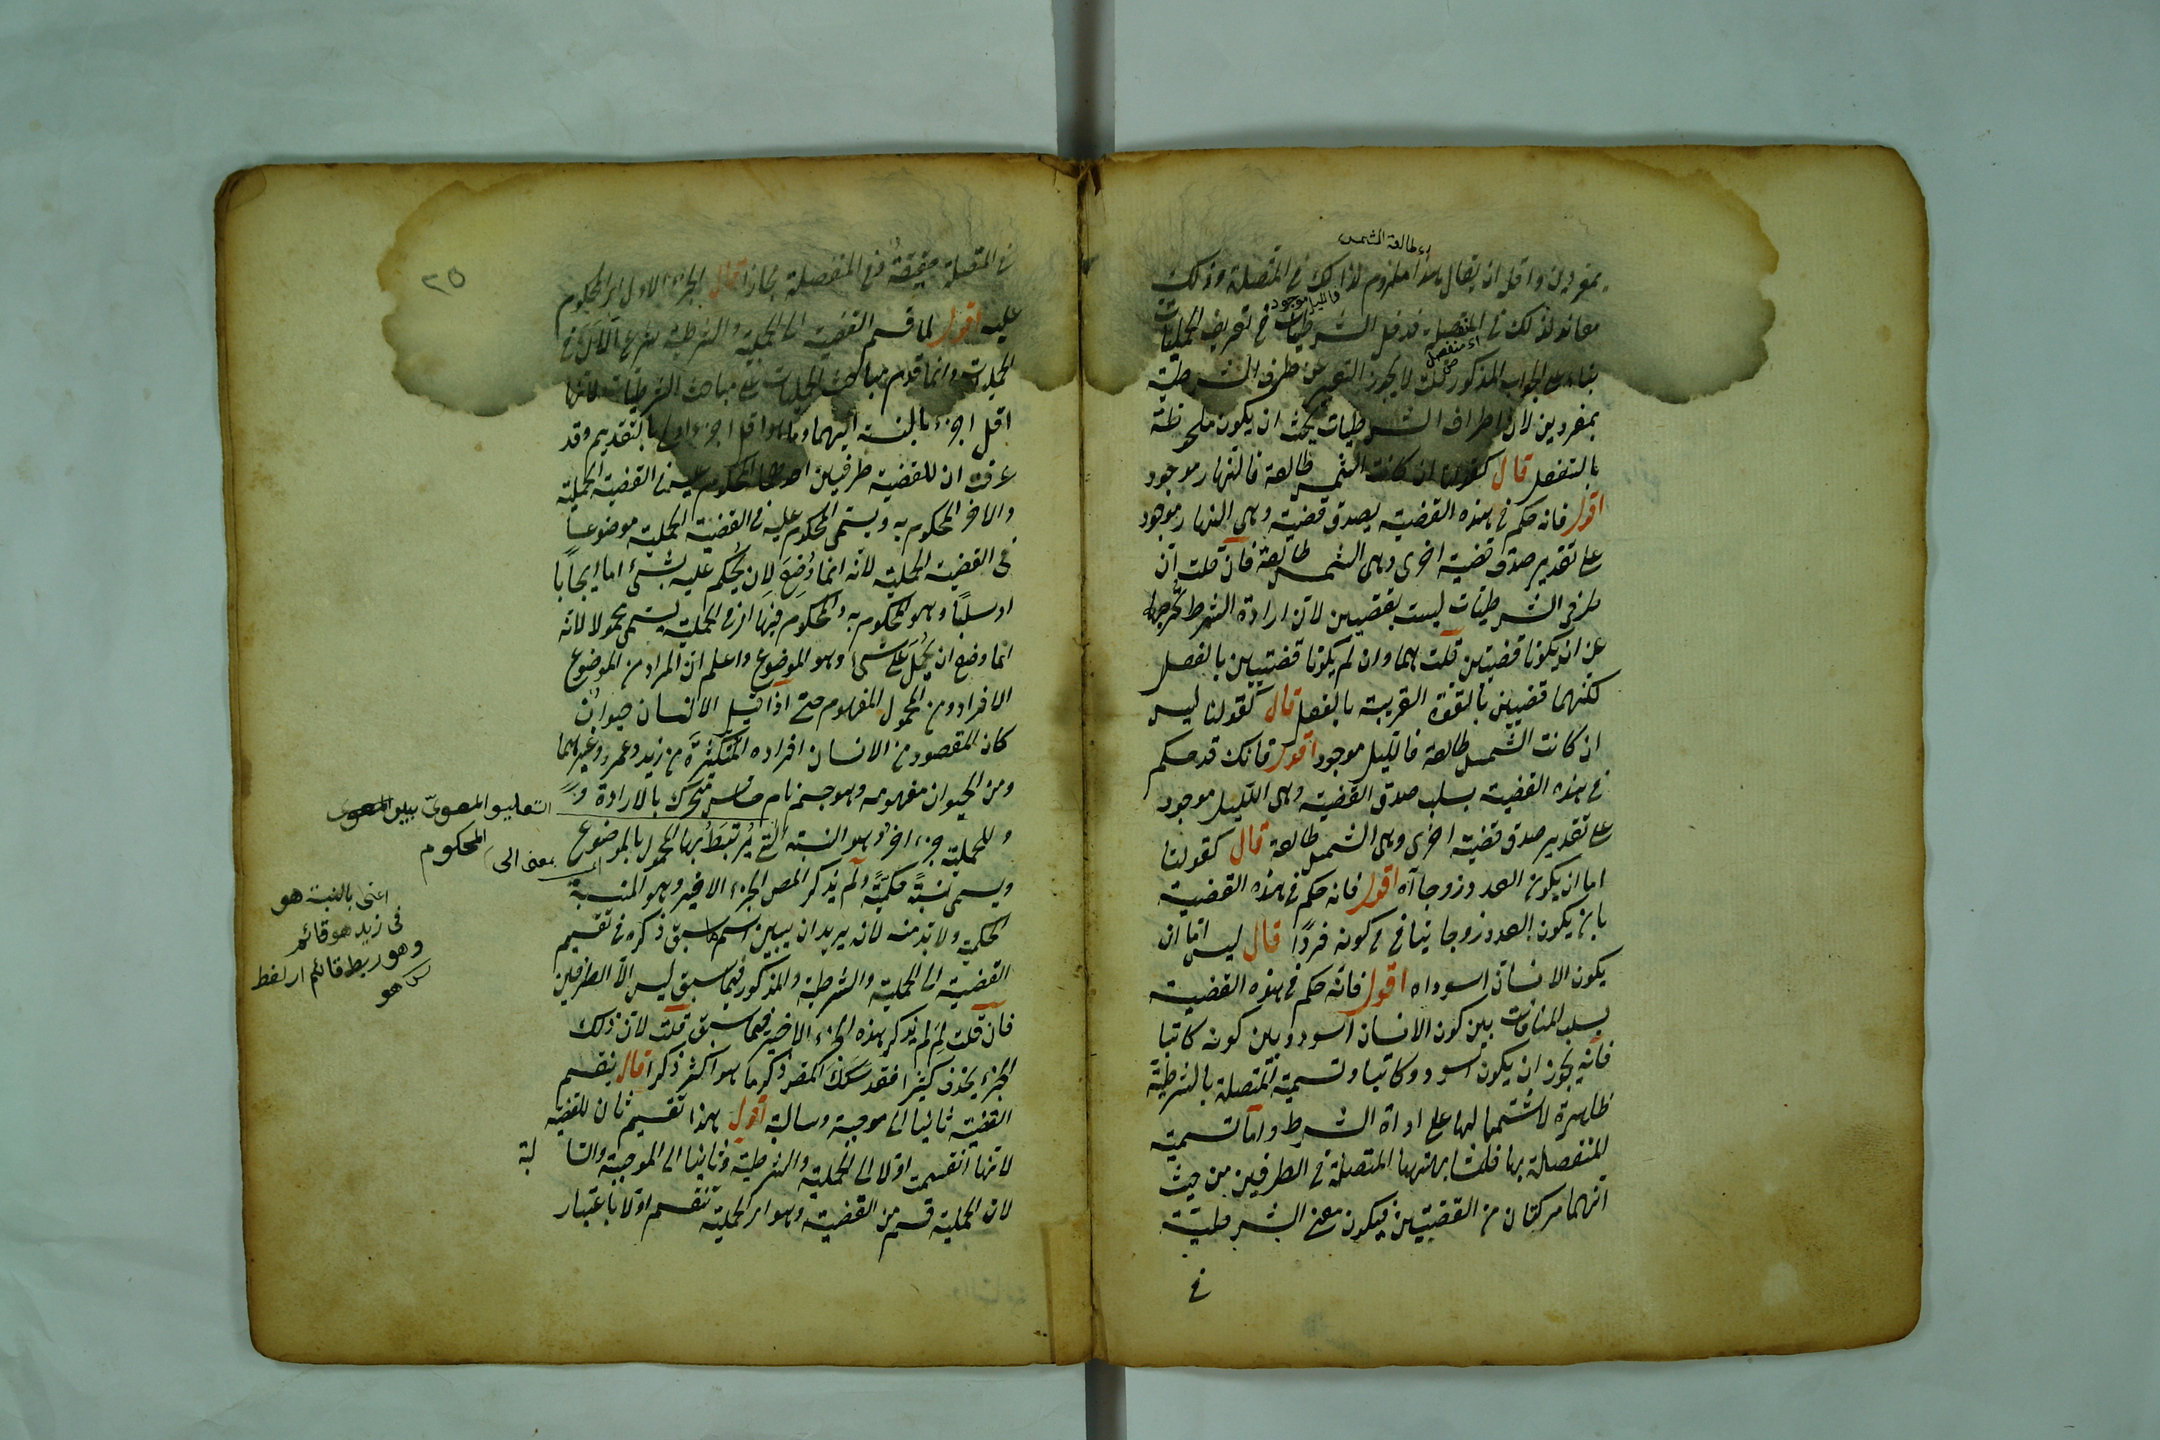 اى طالعة الشمس
بمفردين واقل ان يقال هذا ملزوم لذلك فى المتصلة وذلك
معاند لذلك فى المنفصلة فدخل الشرطيات فى تعريف الحمليات
فالليل موجود
اى منفصل
بناء على الجواب المذكور قلت لا يجوز التعبير عن طرف الشرطية
بمفردين لان اطراف الشرطيات يجب ان يكون ملحوظة
بالتفصل قال كقولنا ان كانت الشمس طالعة فالنهار موجود
اقول فانه حكم فى هذه القضية بصدق قضية وهى النهار موجود
على تقدير صدق قضية اخرى وهى الشمس طالعة فان قلت ان
طرفى الشرطيات ليست بقضيين لان اراداة الشرط تخرجهما
عن ان يكونا قضيتين قلت هما وان لم يكونا قضيتيين بالفصل
لكنهما قضيين بالقوة القريبة بالفصل قال كقولنا ليس
ان كانت الشمس طالعة فالليل موجود اقول فانك قد حكم
فى هذه القضية بسلب صدق القضية وهى الليل موجود
على تقدير صدق قضية اخرى وهى الشمس طالعة قال كقولنا
اما ان يكون العدد زوجا آه اقول فانه حكم فى هذه القضية
بان يكون العدد زوجا ينافى فى كونه فردًا قال ليس اما ان
يكون الانسان اسود اه اقول فانه حكم فى هذه القضية
بسلب المنافات بين كون الانسان اسود وبين كونه كاتبا
فانه يجوز ان يكون اسود وكاتبا وتسمية المتصلة بالشرطية
ظاهرة لاشتمالها على اداة الشرط واما تسمية
المنفصلة بها فلمشابهتها المتصلة فى الطرفين من حيث
انهما مركبتان من القضيتين فيكون معنى الشرطية
فى
٢٥
فى المتصلة حقيقة وفى المنفصلة مجازا قال الجزء الاول اى المحكوم
عليه اقول لما قسم القضية الى الحملية والشرطية شرع الآن فى
الحمليات وانما قدم مباحث الحمليات على مباحث الشرطيات لانها
اقل اجزاء بالنسبة اليهما وما هو اقل اجزاء اولى بالتقديم وقد
عرفت ان للقضية طرفين احدهما المحكوم عليه فى القضية الحملية
والاخر المحكوم به ويسمى المحكوم عليه فى القضية الحملية موضوعا
فى القضية الحملية لانه انما وُضِعَ لِان يُحْكم عليه بشىء اما ايجابًا
او سلبًا وهو المحكوم به والمحكوم فيها اى فى الحملية يسمى محمولا لانه
انما وضع ان يُحْمَلَ على شىء وهو الموضوع واعلم ان المراد من الموضوع
الافراد ومن المحمول المفهوم حتى اذا قيل الانسان حيوان
كان المقصود من الانسان افراده المتكثرة من زيد وعمرو وغيرهما
ومن الحيوان مفهومه وهو جسم نام حساس متحرك بالارادة و
وللحملية جزء اخر وهو النسبة التى يُرتبَطُ بها المحمول بالموضوع
ويسمى نسبةً حكميّةً ولم يذكر المص الجزء الاخير وهو النسبة
الحكمية ولا بد منه لانه يريد ان يبين اسم ما سبق ذكره فى تقسيم
القضية الى الحملية والشرطية والمذكور فيما سبق ليس الا الطرفين
فان قلت لِمَ لم يذكر هذه الجزء الاخير فيما سبق قلت لان ذلك
الجزء يحذف كثيرا فقد ترك المص ذكر ما هو اكثر ذكرا قال ينقسم
القضية ثانيا الى موجبة وسالبة اقول هذا تقسيم ثان للقضية
لانها انقسمت اولا الى الحملية والشرطية وثانيا الى الموجبة والسا لبة
لان الحملية قسم من القضية وهو اى الحملية تنقسم اولا باعتبار
المحكوم
بمعنى الى
اعنى بالنسبة هو
فى زيد هو قائم
وهو ربط قائم ار لفظ
هو